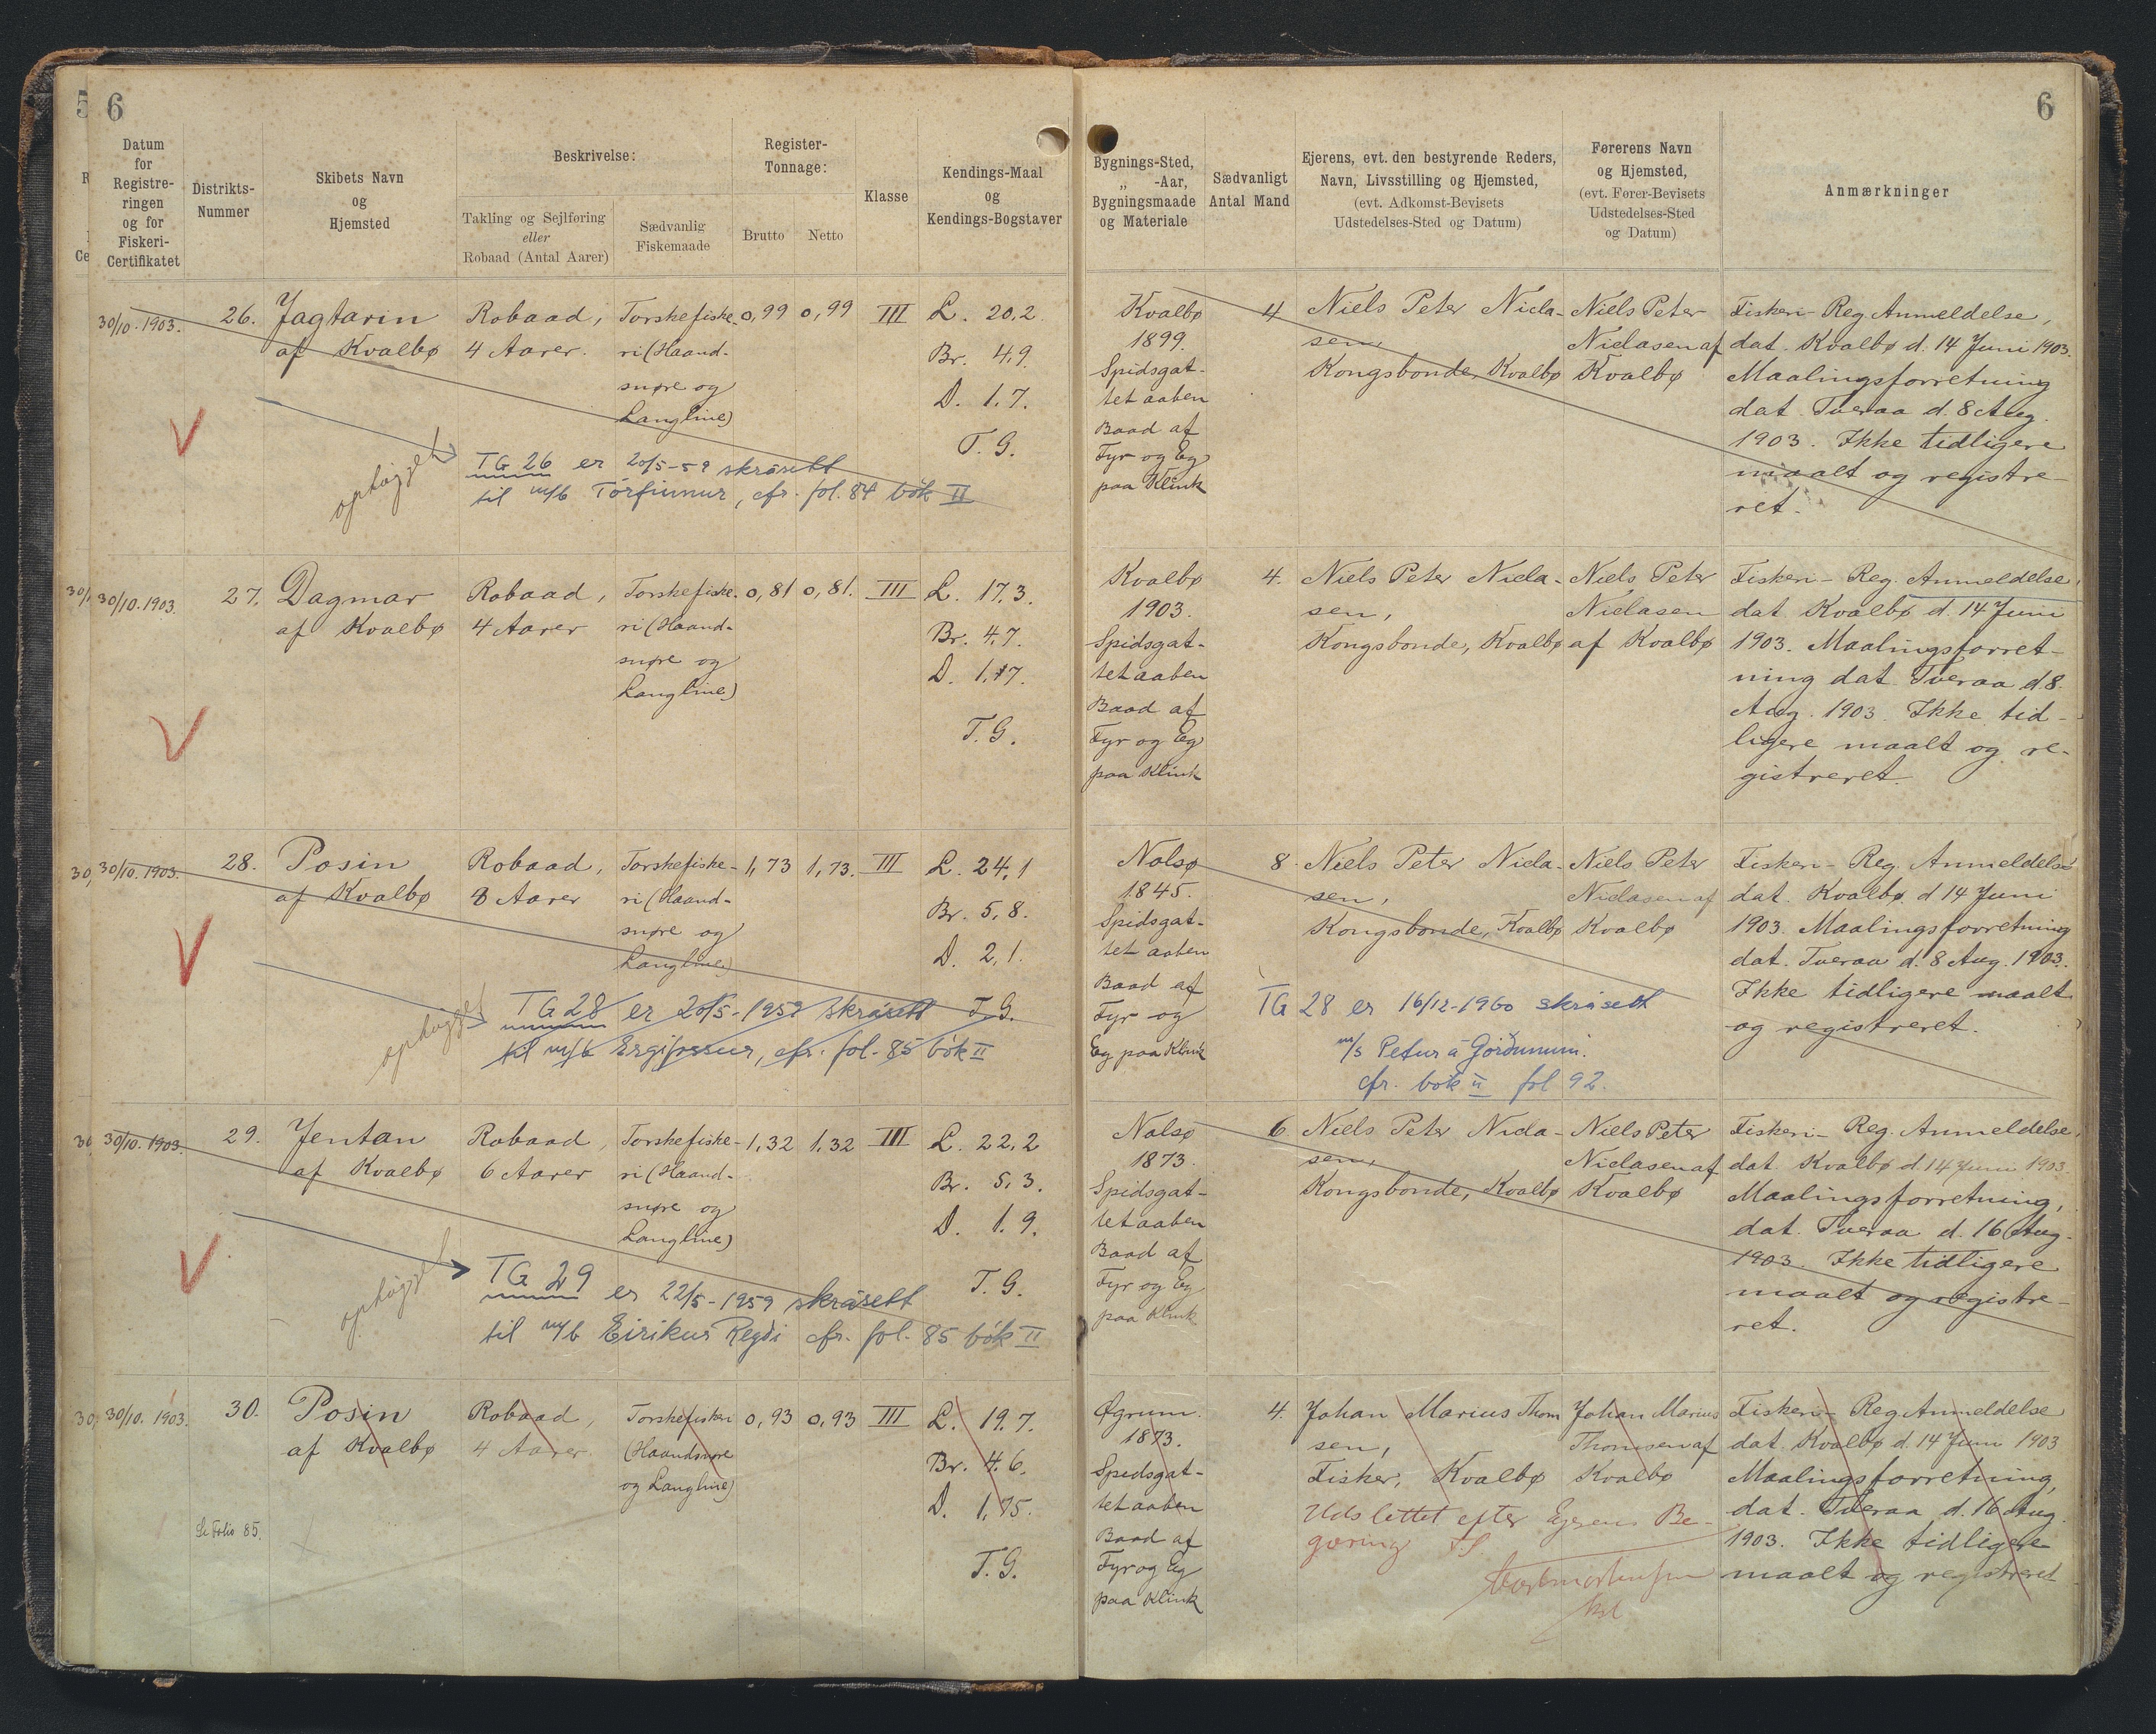 5
6
6
Datum
for
Registre-
ringen
og for
Fiskeri-
Certifikatet
Distrikts-
Nummer
Skibets Navn
og
Hjemsted
Beskrivelse:
Takling og Sejlføring
eller
Robaad (Antal Aarer)
Sædvanlig
Fiskemaade
Register-
Tonnage:
Brutto
Netto
Klasse
Kendings-Maal
og
Kendings-Bogstaver
Bygnings-Sted,
„ -Aar,
Bygningsmaade
og Materiale
Sædvanligt
Antal Mand
Ejerens, evt. den bestyrende Reders,
Navn, Livsstilling og Hjemsted,
(evt. Adkomst-Bevisets
Udstedelses-Sted og Datum)
Førerens Navn
og Hjemsted,
(evt. Fører-Bevisets
Udstedelses-Sted
og Datum)
Anmærkninger
30/10. 1903.
26.
Jagtarin
af Kvalbø
Robaad,
4 Aarer.
Torskefiske-
ri (Haand-
snøre og
Langline)
0,99
0,99
III
L. 20,2
Br. 4,9.
D. 1.7.
T. G.
ophøgget
TG 26 er 20/5-59 skrásett
til m/b Tórfinnur, cfr. fol. 84 bók II
Kvalbø
1899.
Spidsgat-
tet aaben
Baad af
Fyr og Eg
paa Klink
4
Niels Peter Nicla-
sen,
Kongsbonde, Kvalbø
Niels Peter
Niclasen af
Kvalbø
Fiskeri-Reg. Anmeldelse,
dat. Kvalbø d. 14 Juni 1903.
Maalingsforretning
dat. Tveraa d. 8 Aug.
1903. Ikke tidligere
maalt og registre-
ret.
30/10. 1903.
27.
Dagmar
af Kvalbø
Robaad,
4 Aarer
Torskefiske-
ri (Haand-
snøre og
Langline)
0,81
0,81.
III
L. 17,3.
Br. 4,7.
D. 1,7.
T. G.
Kvalbø
1903.
Spidsgat-
tet aaben
Baad af
Fyr og Eg
paa Klink
4.
Niels Peter Nicla-
sen,
Kongsbonde, Kvalbø
Niels Peter
Niclasen
af Kvalbø
Fiskeri-Reg. Anmeldelse,
dat. Kvalbø d. 14 Juni
1903. Maalingsforret-
ning dat. Tveraa d. 8.
Aug. 1903. Ikke tid-
ligere maalt og re-
gistreret.
30/10. 1903.
28.
Posin
af Kvalbø
Robaad,
8 Aarer
Torskefiske-
ri (Haand-
snøre og
Langline)
1,73
1,73.
III
L. 24,1
Br. 5,8.
D. 2,1.
T. G.
ophøgget
TG 28 er 20/5-1959 skrásett
til m/b Ergifossur, cfr. fol. 85 bók II
Nolsø
1845.
Spidsgat-
tet aaben
Baad af
Fyr og
Eg paa Klink
8.
Niels Peter Nicla-
sen,
Kongsbonde, Kvalbø
Niels Peter
Niclasen af
Kvalbø
TG 28 er 16/12-1960 skrásett
m/s Petur á Gørðunum.
cfr. bók II fol 92.
Fiskeri-Reg. Anmeldelse
dat. Kvalbø d 14 Juni
1903. Maalingsforretning
dat. Tveraa d. 8 Aug. 1903.
Ikke tidligere maalt
og registreret.
30/10. 1903.
29.
Jentan
af Kvalbø
Robaad,
6 Aarer
Torskefiske-
ri (Haand-
snøre og
Langline)
1,32
1,32
III
L. 22,2
Br. 5,3.
D. 1,9.
T. G.
ophøgget
TG 29 er 22/5-1959 skrásett
til m/b Eirikur Regði cfr. fol. 85 bók II
Nolsø
1873.
Spidsgat-
tet aaben
Baad af
Fyr og Eg
paa Klink
6
Niels Peter Nicla-
sen,
Kongsbonde, Kvalbø
Niels Peter
Niclasen af
Kvalbø
Fiskeri-Reg. Anmeldelse,
dat. Kvalbø d. 14 Juni 1903.
Maalingsforretning,
dat. Tveraa d. 16 Aug.
1903. Ikke tidligere
maalt og registre-
ret.
30/10. 1903.
30.
Posin
af Kvalbø
Robaad,
4 Aarer
Torskefiskeri
(Haandsnøre
og Langline)
0,93
0,93
III
L. 19.7.
Br. 4.6.
D. 1,75.
T. G.
Se Folio 85.
Øgrum.
1873.
Spidsgat-
tet aaben
Baad af
Fyr og Eg
paa Klink
4.
Johan Marius Thom
sen,
Fisker, Kvalbø
Johan Marius
Thomsen af
Kvalbø
Udslettet efter Ejerens Be-
gæring
Fiskeri-Reg. Anmeldelse
dat. Kvalbø d. 14 Juni 1903
Maalingsforretning,
dat. Tveraa d. 16 Aug.
1903. Ikke tidligere
maalt og registreret